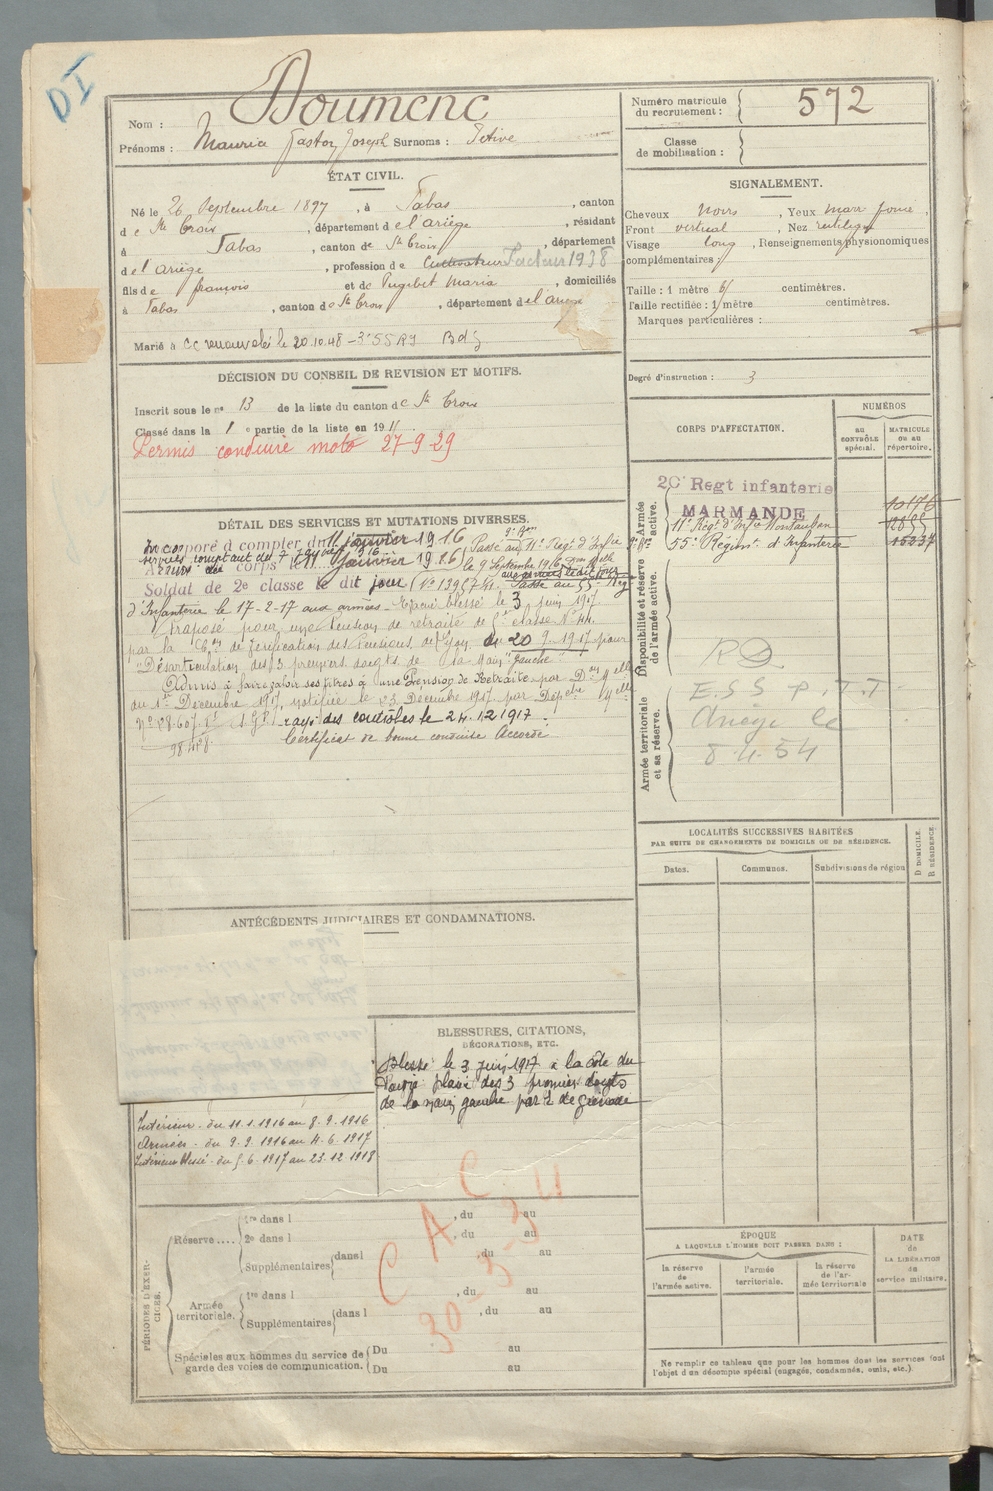 DI
Nom : Doumenc
Prénoms : Maurice Gaston Joseph Surnoms :
ÉTAT CIVIL.
Né le 26 Septembre 1897, à Tabas, canton
de Ste Croix, département de l'ariège, résidant
à Tabas, canton de St Croix, département
de l'ariège, profession de Cultivateur Facteur 1938
fils de françois et de Pugibet Maria, domiciliés
à Tabas, canton de Ste Croix, département de l'ariège
Marié à CC renouvelée le 20.10.48 - 3'55 RI Bdg
DÉCISION DU CONSEIL DE REVISION ET MOTIFS.
Inscrit sous le no 13 de la liste du canton de Ste Croix
Classé dans la 1 e partie de la liste en 191
Permis conduire moto 27-9-29
DÉTAIL DES SERVICES ET MUTATIONS DIVERSES.
Incorporé à compter du 11 janvier 1916
services comptant du 7 janvier 1916
Arrivé au corps le 11 janvier 1916 Passé au 11e Régt d'Infie
le 9 Septembre 1916
Soldat de 2e classe le dit jour Passé au 55e Rég
d'Infanterie le 17-2-17 aux armées - Evacué blessé le 3 juin 1917
Proposé pour une Pension de retraite de classe No 44.
par la Con de Vérification des Pensions de Lyon du 20-9-1917 pour
"Désarticulation des 3 premiers doigts de la Main gauche".
Admis à faire valoir ses titres à une Pension de Retraite par Don
du 1er Décembre 1917, notifiée le 23 Décembre 1917 par Dépche
No 28.607 rayé des contrôles le 24.12.1917.
Certificat de bonne conduite Accordé
ANTÉCÉDENTS JUDICIAIRES ET CONDAMNATIONS.
BLESSURES, CITATIONS,
DÉCORATIONS, ETC.
Blessé le 3 juin 1917 à la côte du
plaie des 3 premiers doigts
de la main gauche par é de grenade
Intérieur - du 11.1.1916 au 8.9.1916
Armées - du 9.9.1916 au 4.6.1917
Intérieur blessé - du 5.6.1917 au 23.12.1918
C A C
30-3-34
PÉRIODES D'EXERCICES.
Réserve.... 1re dans l , du au
2e dans l , du au
Supplémentaires dans l , du au
Armée territoriale. 1re dans l , du au
Supplémentaires dans l , du au
Spéciales aux hommes du service de Du au
garde des voies de communication. Du au
Numéro matricule
du recrutement : 572
Classe
de mobilisation :
SIGNALEMENT.
Cheveux noirs, Yeux marr foncé,
Front vertical, Nez rectiligne
Visage long, Renseignements physionomiques
complémentaires :
Taille : 1 mètre 61 centimètres.
Taille rectifiée : 1 mètre centimètres.
Marques particulières :
Degré d'instruction : 3
CORPS D'AFFECTATION.
NUMÉROS
au
CONTRÔLE
spécial.
MATRICULE
ou au
répertoire.
Armée active.
20e Regt infanterie
MARMANDE 10176
11e Régt d'Infie Montauban
55e Régimt d'Infanterie 15237
Disponibilité et réserve de l'armée active.
Armée territoriale et sa réserve.
E.S.S P.T.T.
Ariège le
8.4.54
LOCALITÉS SUCCESSIVES HABITÉES
PAR SUITE DE CHANGEMENTS DE DOMICILE OU DE RÉSIDENCE.
Dates. Communes. Subdivisions de région D DOMICILE. R RÉSIDENCE.
ÉPOQUE
A LAQUELLE L'HOMME DOIT PASSER DANS :
la réserve
de
l'armée active.
l'armée
territoriale.
la réserve
de l'ar-
mée territoriale
DATE
de
LA LIBÉRATION
du
service militaire.
Ne remplir ce tableau que pour les hommes dont les services font
l'objet d'un décompte spécial (engagés, condamnés, omis, etc.).